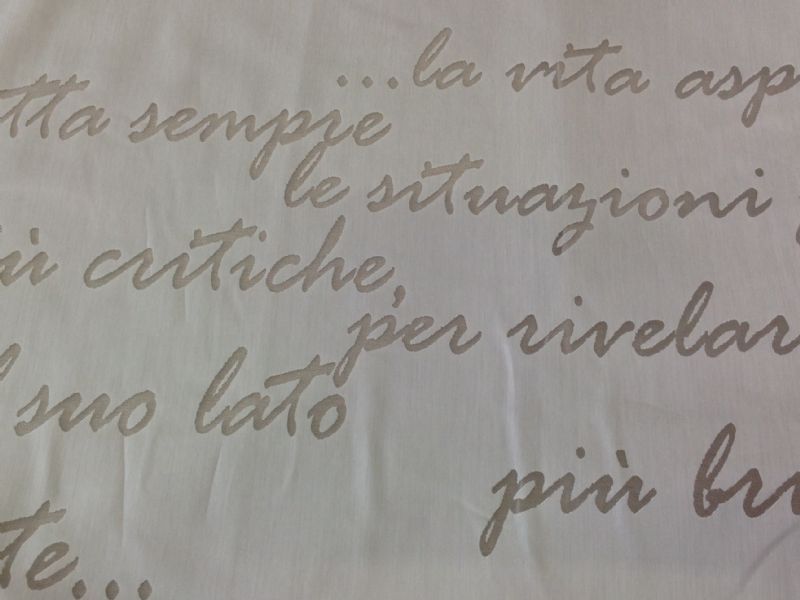 ...la vita asp
tta sempre
le situazioni
iù critiche,
per rivelar
l suo lato
più bri
te...